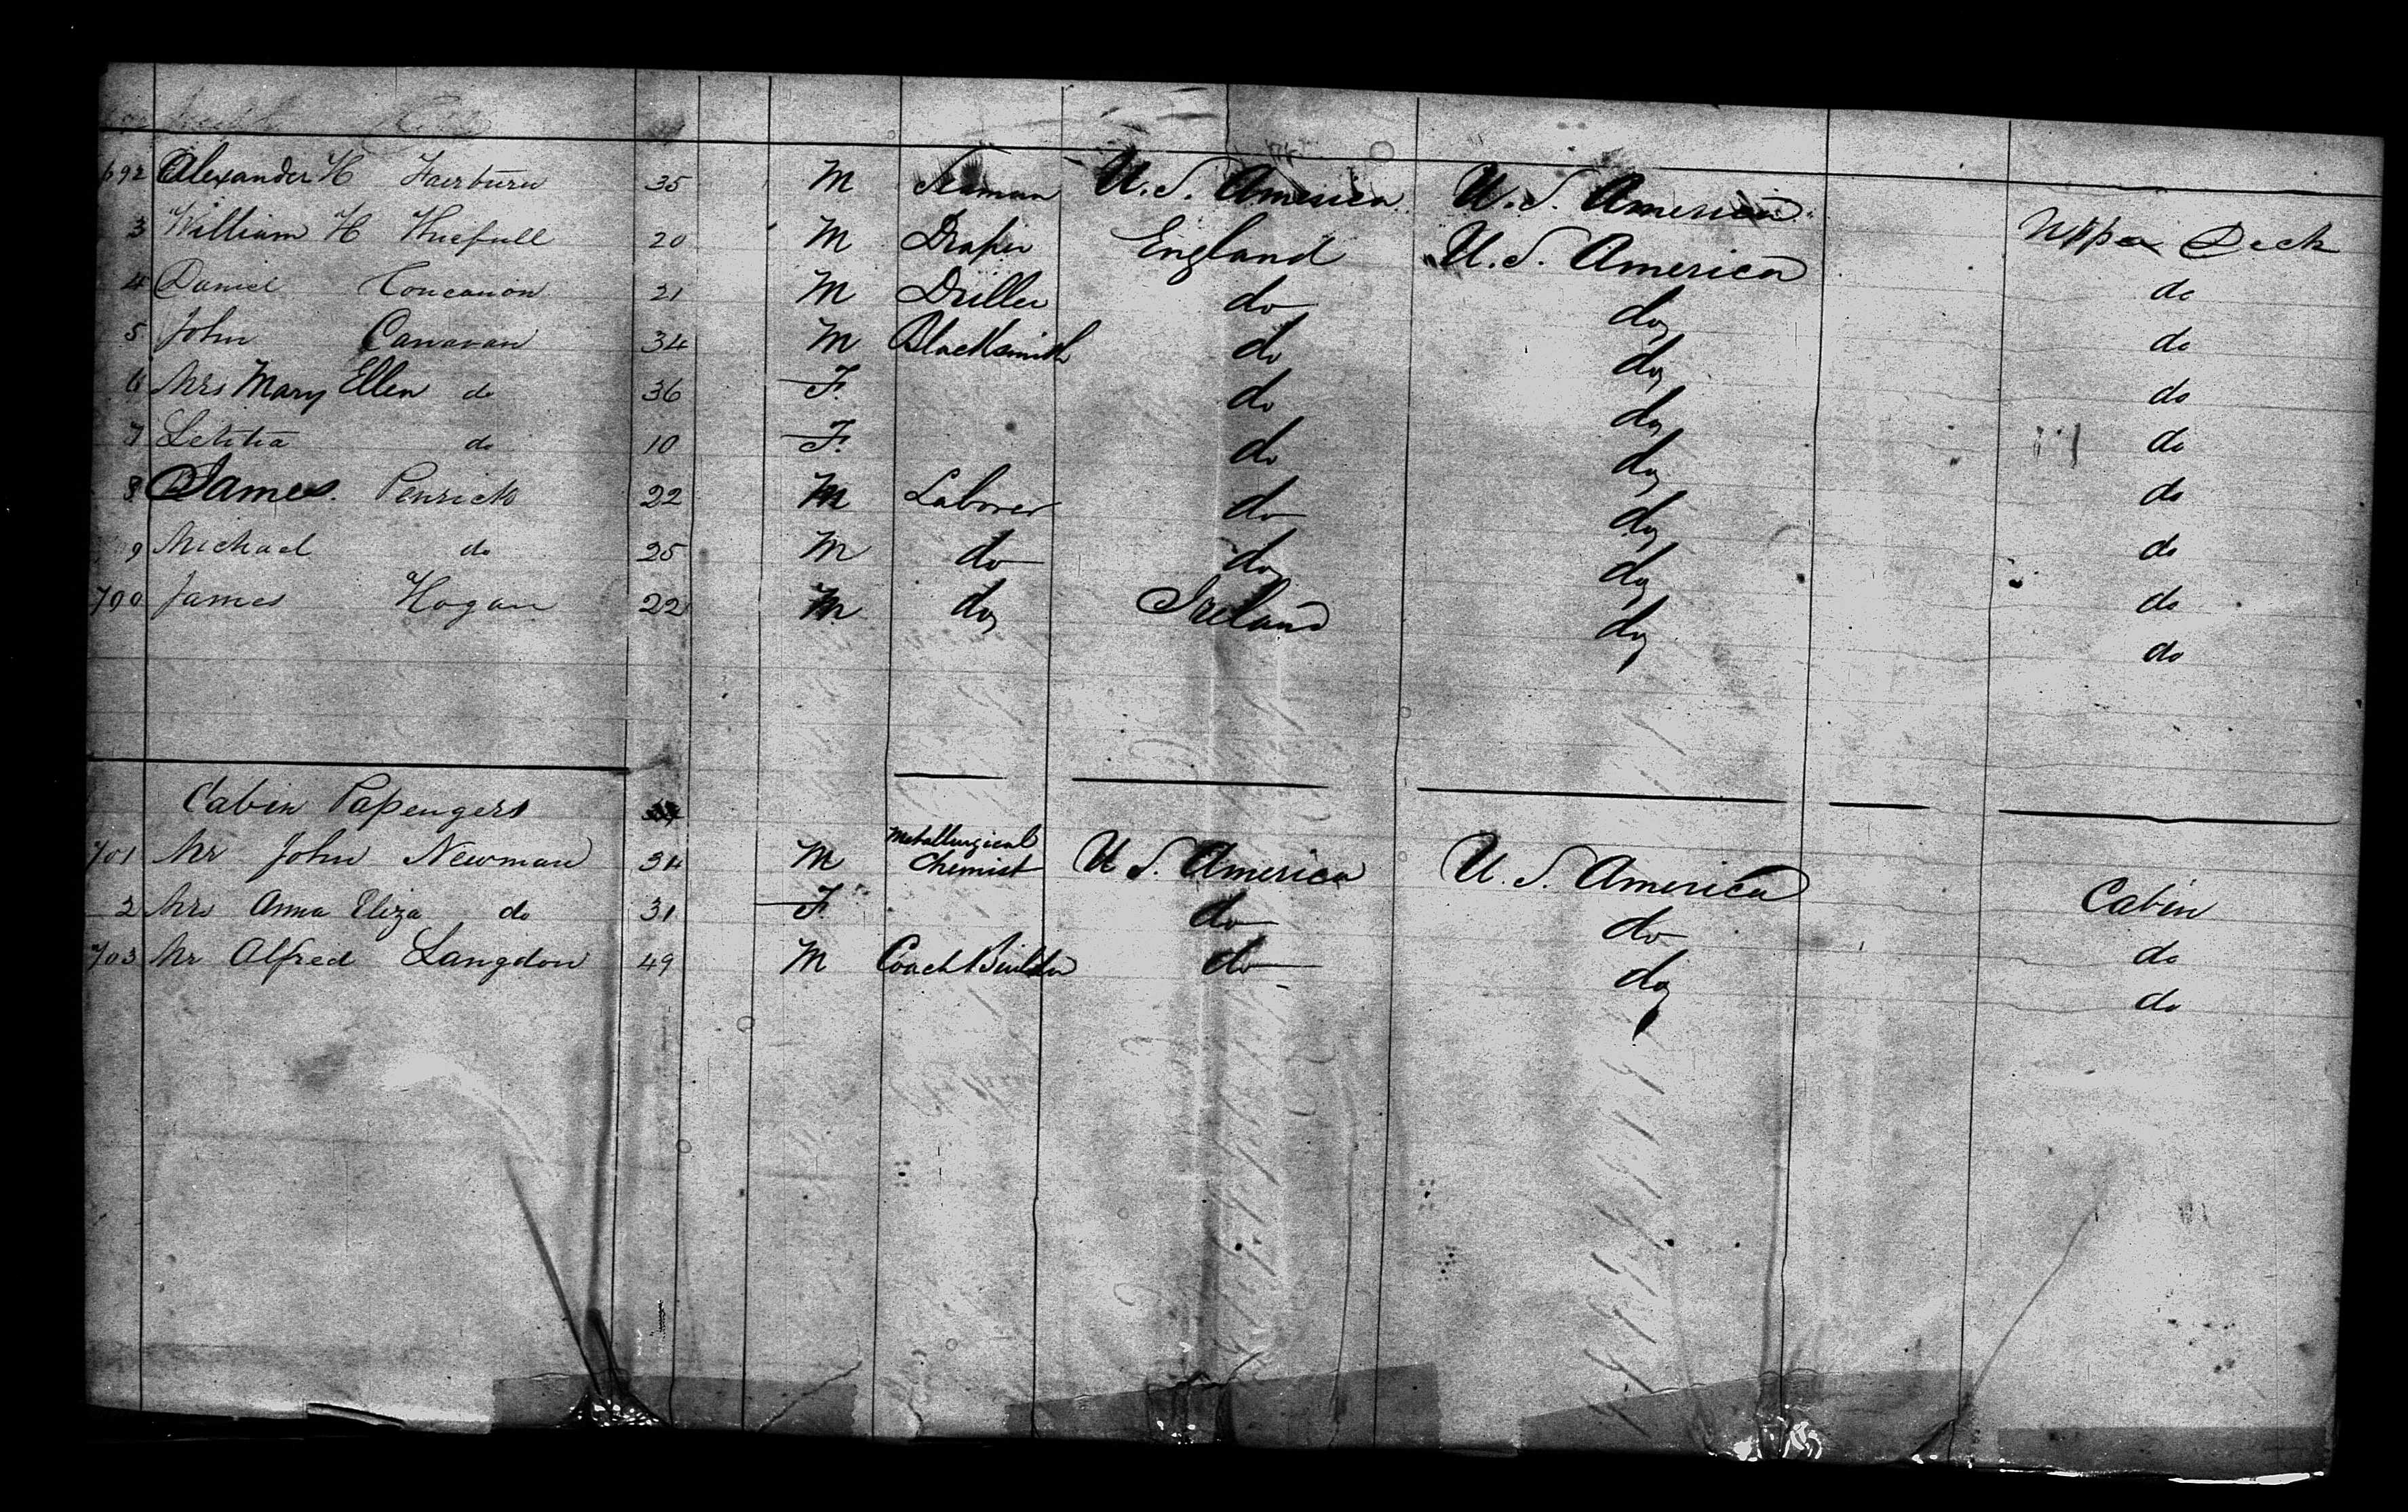 692 Alexander H Fairburn 35 M Seaman U.S. America U.S. America Upper Deck
3 William H 20 M Draper England U.S. America do
4 Daniel Concanon 21 M Driller do do do
5 John Canavan 34 M Blacksmith do do do
6 Mrs Mary Ellen do 36 F. do do do
7 Letitia do 10 F. do do do
8 James. Penrick 22 M Laborer do do do
9 Michael do 25 M do do do do
700 James Hogan 22 M do Ireland do do
Cabin Passengers
701 Mr John Newman 34 M Metallurgical Chemist U S. America U.S. America Cabin
2 Mrs Anna Eliza do 31 F. do do do
703 Mr Alfred Langdon 49 M Coach Builder do do do